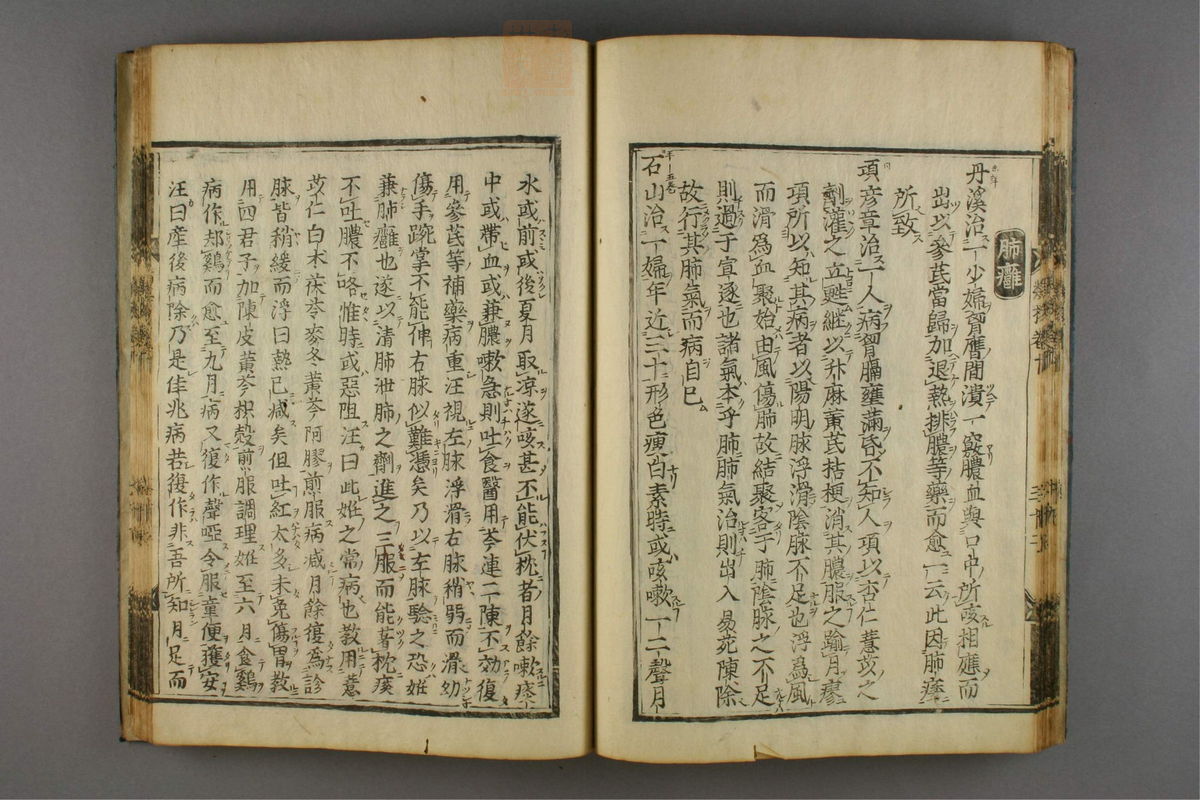 肺癰
丹溪治一少婦胷膺間潰一竅膿血與口中所咳相應而
出以參芪當歸加退熱排膿等藥而愈一云此因肺痿
所致
項彥章治一人病胷膈壅滿昏不知人項以杏仁薏苡之
劑灌之立甦繼以升麻黃芪桔梗消其膿服之踰月瘳
項所以知其病者以陽明脉浮滑陰脉不足也浮爲風
而滑爲血聚始由風傷肺故結聚客于肺陰脉之不足
則過于宣逐也諸氣本乎肺肺氣治則出入易菀陳除
故行其肺氣而病自已
石山治一婦年近三十形色瘐白素時或咳嗽一二聲月
水或前或後夏月取凉遂咳甚不能伏枕者月餘嗽痰
中或帶血或兼膿嗽急則吐食醫用芩連二陳不効復
用參芪等補藥病重汪視左脉浮滑右脉稍弱而滑幼
傷手踠掌不能伸右脉似難憑矣乃以左脉驗之恐妊
兼肺癰也遂以清肺泄肺之劑進之三服而能著枕痰
不吐膿不咯惟時或惡阻汪曰此妊之常病也教用薏
苡仁白朮茯苓麥冬黃芩阿膠煎服病减月餘復爲診
脉皆稍緩而浮曰熱已减矣但吐紅太多未免傷胃教
用四君子加陳皮黃芩枳殼煎服調理妊至六月食雞
病作却雞而愈至九月病又復作聲啞令服童便獲安
汪曰產後病除乃是佳兆病若復作非吾所知月足而